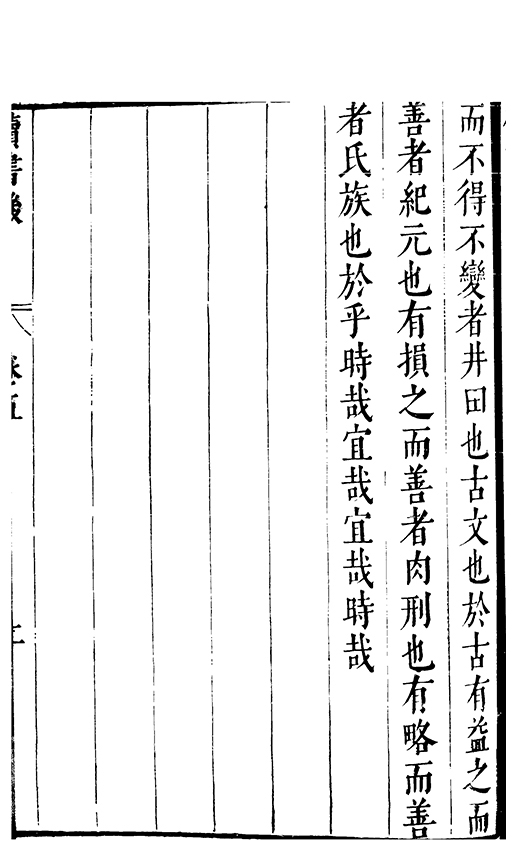 而不得不變者井田也古文也於古有益之而
善者紀元也有損之而善者肉刑也有略而善
者氏族也於乎時哉宜哉宜哉時哉
卷五